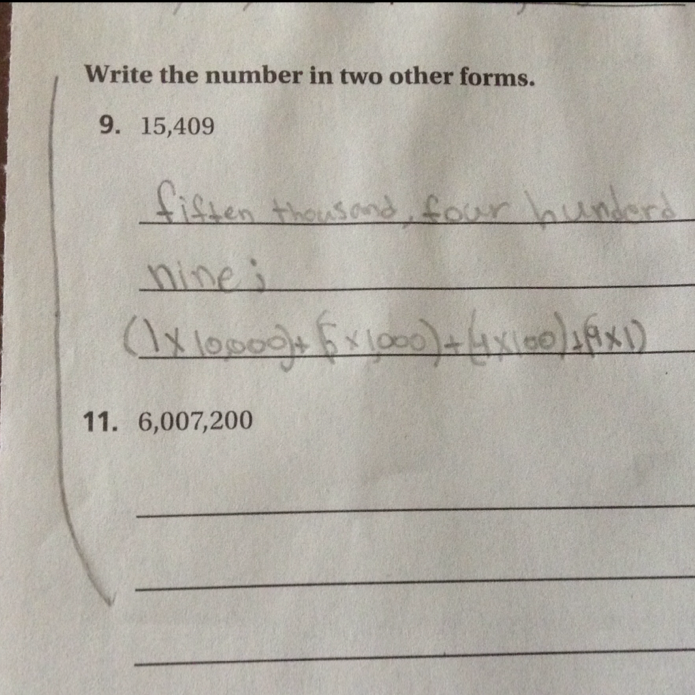 Write the number in two other forms.
9. 15,409
fiften thousand, four hunderd
nine;
(1 x 10,000)+(5 x 1,000)+(4x100)+(9x1)
11. 6,007,200